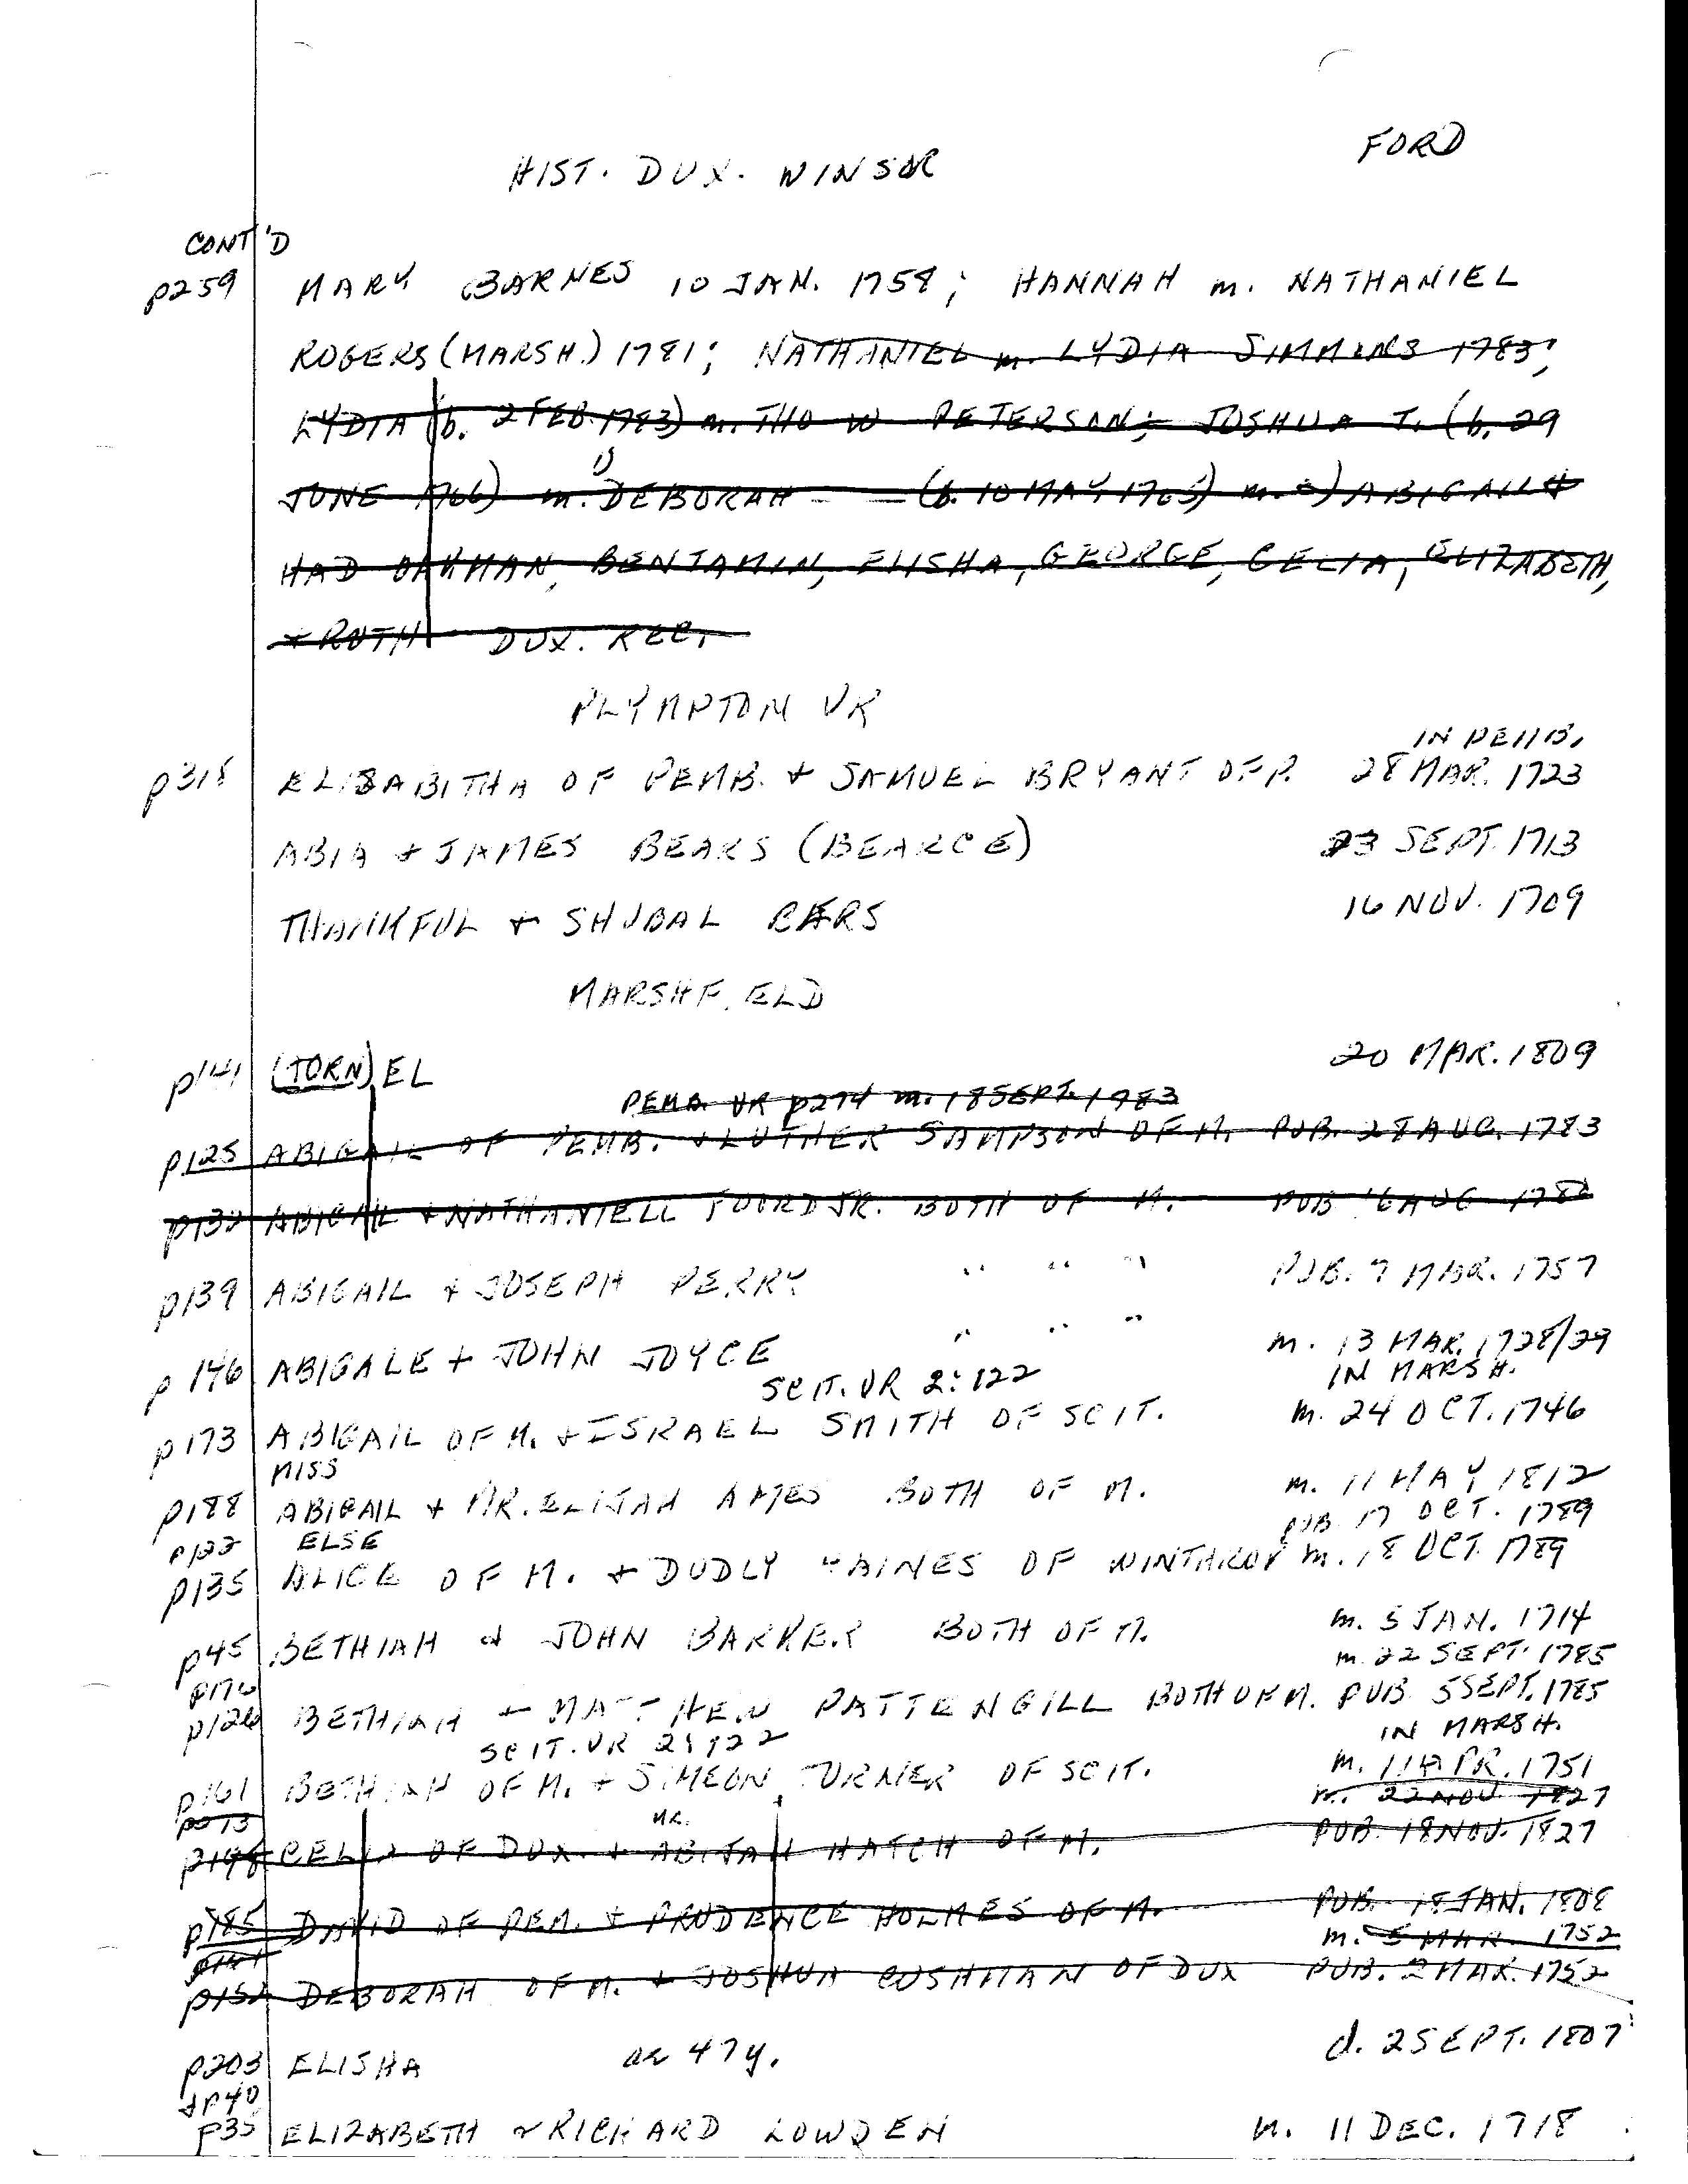 FORD
HIST. DUX. WINSOR
CONT'D
p259 MARY BARNES 10 JAN. 1758; HANNAH m. NATHANIEL
ROGERS (MARSH.) 1781; NATHANIEL m. LYDIA SIMMONS 1783;
LYDIA (b. 2 FEB. 1783) m. THO W PETERSON; JOSHUA T. (b. 29
JUNE 1766) m. 1) DEBORAH — (b. 10 MAY 1765) m. 2) ABIGAIL &
HAD OAKMAN, BENJAMIN, ELISHA, GEORGE, CELIA, ELIZABETH,
+ RUTH DUX. REC.
PLYMPTON VR
IN PEMB.
p318 ELISABITHA OF PEMB. + SAMUEL BRYANT OF P. 28 MAR. 1723
ABIA + JAMES BEARS (BEARCE) 23 SEPT. 1713
THANKFUL + SHUBAL BEARS 16 NOV. 1709
MARSHFIELD
p141 (TORN)EL 20 MAR. 1809
PEMB. VR p274 m. 18 SEPT. 1783
p125 ABIGAIL OF PEMB. + LUTHER SAMPSON OF M. PUB. 28 AUG. 1783
ABIGAIL + NATHANIELL FOORD JR. BOTH OF M. PUB AUG
p139 ABIGAIL + JOSEPH PERRY " " " PUB. 7 MAR. 1757
p146 ABIGALE + JOHN JOYCE " " " m. 13 MAR. 1728/29
SCIT. VR 2:122 IN MARSH.
p173 ABIGAIL OF M. + ISRAEL SMITH OF SCIT. m. 24 OCT. 1746
MISS
p188 ABIGAIL + MR. ELIJAH AMES BOTH OF M. m. 11 MAY 1812
p122 ELSE PUB. 17 OCT. 1789
p135 ALICE OF M. + DUDLY HAINES OF WINTHROP m. 18 OCT. 1789
p45 BETHIAH & JOHN BARKER BOTH OF M. m. 5 JAN. 1714
m. 22 SEPT. 1785
p126 BETHIAH + MATTHEW PATTENGILL BOTH OF M. PUB. 5 SEPT. 1785
SCIT. VR 2:122 IN MARSH.
p161 BETHIAH OF M. + SIMEON TURNER OF SCIT. m. 11 APR. 1751
MR. m. 22 NOV. 1827
CELIA OF DUX. + ABIJAH HATCH OF M. PUB. 18 NOV. 1827
p185 DAVID OF PEM. + PRUDENCE HOLMES OF M. PUB. 18 JAN. 1808
m. 5 MAR. 1752
DEBORAH OF M. + JOSHUA CUSHMAN OF DUX PUB. 2 MAR. 1752
p203 ELISHA ae 47y. d. 2 SEPT. 1807
+ p40
p35 ELIZABETH + RICHARD LOWDEN m. 11 DEC. 1718